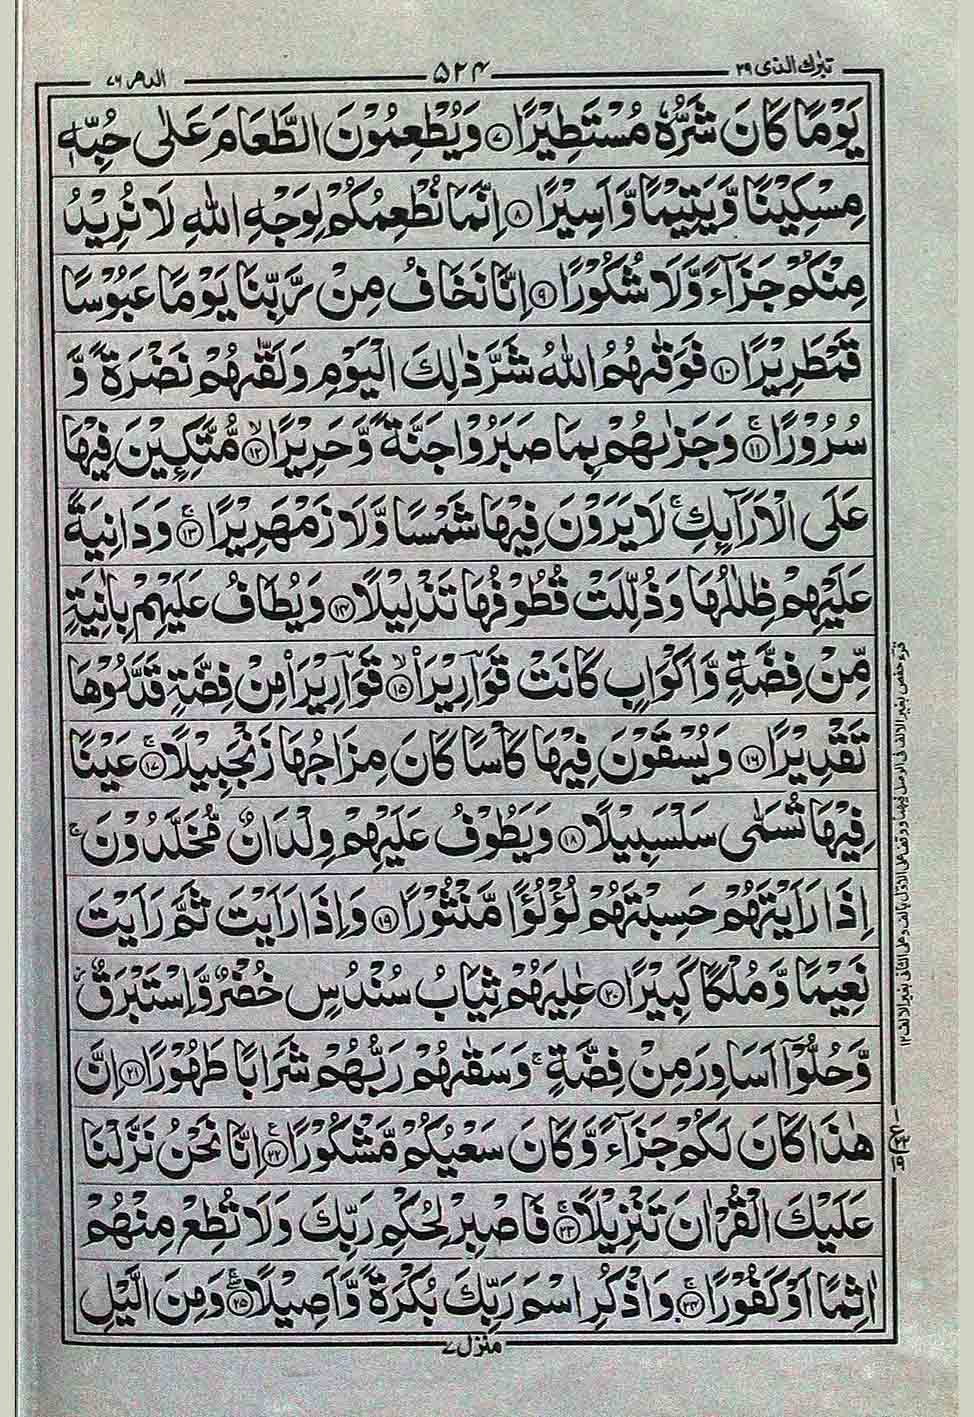 تبٰرك الذی ٢٩
۵۲۴
الدهر ٧٦
يَوْمًا كَانَ شَرُّهٗ مُسْتَطِيْرًا ﴿٧﴾ وَيُطْعِمُوْنَ الطَّعَامَ عَلٰى حُبِّهٖ
مِسْكِيْنًا وَّيَتِيْمًا وَّاَسِيْرًا ﴿٨﴾ اِنَّمَا نُطْعِمُكُمْ لِوَجْهِ اللّٰهِ لَا نُرِيْدُ
مِنْكُمْ جَزَآءً وَّلَا شُكُوْرًا ﴿٩﴾ اِنَّا نَخَافُ مِنْ رَّبِّنَا يَوْمًا عَبُوْسًا
قَمْطَرِيْرًا ﴿١٠﴾ فَوَقٰىهُمُ اللّٰهُ شَرَّ ذٰلِكَ الْيَوْمِ وَلَقّٰىهُمْ نَضْرَةً وَّ
سُرُوْرًا ﴿١١﴾ۚ وَجَزٰىهُمْ بِمَا صَبَرُوْا جَنَّةً وَّحَرِيْرًا ﴿١٢﴾ۙ مُّتَّكِـِٕيْنَ فِيْهَا
عَلَى الْاَرَآئِكِ ۚ لَا يَرَوْنَ فِيْهَا شَمْسًا وَّلَا زَمْهَرِيْرًا ﴿١٣﴾ۚ وَدَانِيَةً
عَلَيْهِمْ ظِلٰلُهَا وَذُلِّلَتْ قُطُوْفُهَا تَذْلِيْلًا ﴿١٤﴾ وَيُطَافُ عَلَيْهِمْ بِاٰنِيَةٍ
مِّنْ فِضَّةٍ وَّاَكْوَابٍ كَانَتْ قَوَارِيْرَا۟ ﴿١٥﴾ۙ قَوَارِيْرَا۟ مِنْ فِضَّةٍ قَدَّرُوْهَا
تَقْدِيْرًا ﴿١٦﴾ وَيُسْقَوْنَ فِيْهَا كَاْسًا كَانَ مِزَاجُهَا زَنْجَبِيْلًا ﴿١٧﴾ۚ عَيْنًا
فِيْهَا تُسَمّٰى سَلْسَبِيْلًا ﴿١٨﴾ وَيَطُوْفُ عَلَيْهِمْ وِلْدَانٌ مُّخَلَّدُوْنَ ۚ
اِذَا رَاَيْتَهُمْ حَسِبْتَهُمْ لُؤْلُؤًا مَّنْثُوْرًا ﴿١٩﴾ وَاِذَا رَاَيْتَ ثَمَّ رَاَيْتَ
نَعِيْمًا وَّمُلْكًا كَبِيْرًا ﴿٢٠﴾ عٰلِيَهُمْ ثِيَابُ سُنْدُسٍ خُضْرٌ وَّاِسْتَبْرَقٌ ۡ
وَّحُلُّوْٓا اَسَاوِرَ مِنْ فِضَّةٍ ۚ وَسَقٰىهُمْ رَبُّهُمْ شَرَابًا طَهُوْرًا ﴿٢١﴾ اِنَّ
هٰذَا كَانَ لَكُمْ جَزَآءً وَّكَانَ سَعْيُكُمْ مَّشْكُوْرًا ﴿٢٢﴾ۧ اِنَّا نَحْنُ نَزَّلْنَا
عَلَيْكَ الْقُرْاٰنَ تَنْزِيْلًا ﴿٢٣﴾ۚ فَاصْبِرْ لِحُكْمِ رَبِّكَ وَلَا تُطِعْ مِنْهُمْ
اٰثِمًا اَوْ كَفُوْرًا ﴿٢٤﴾ۚ وَاذْكُرِ اسْمَ رَبِّكَ بُكْرَةً وَّاَصِيْلًا ﴿٢٥﴾ۖ وَمِنَ الَّيْلِ
منزل ٧